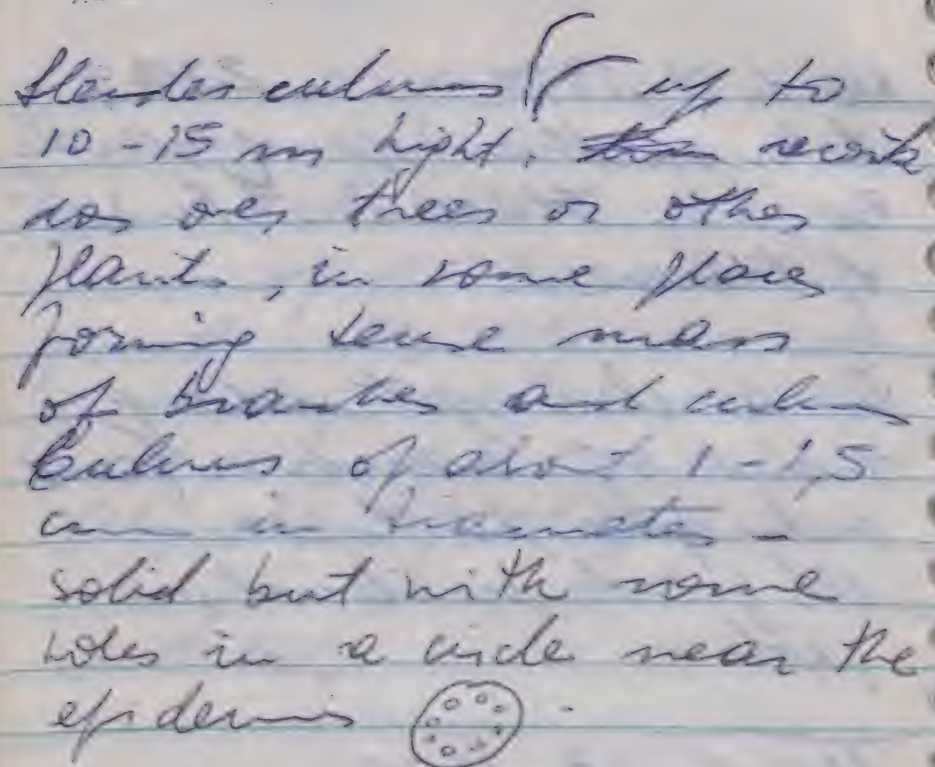 Slender culms up to
10-15 m hight.
dos over trees or other
plants, in some places
forming dense mass
of branches and culms
Culms of about 1-1,5
cm in diameter -
solid but with some
holes in a circle near the
epidermis